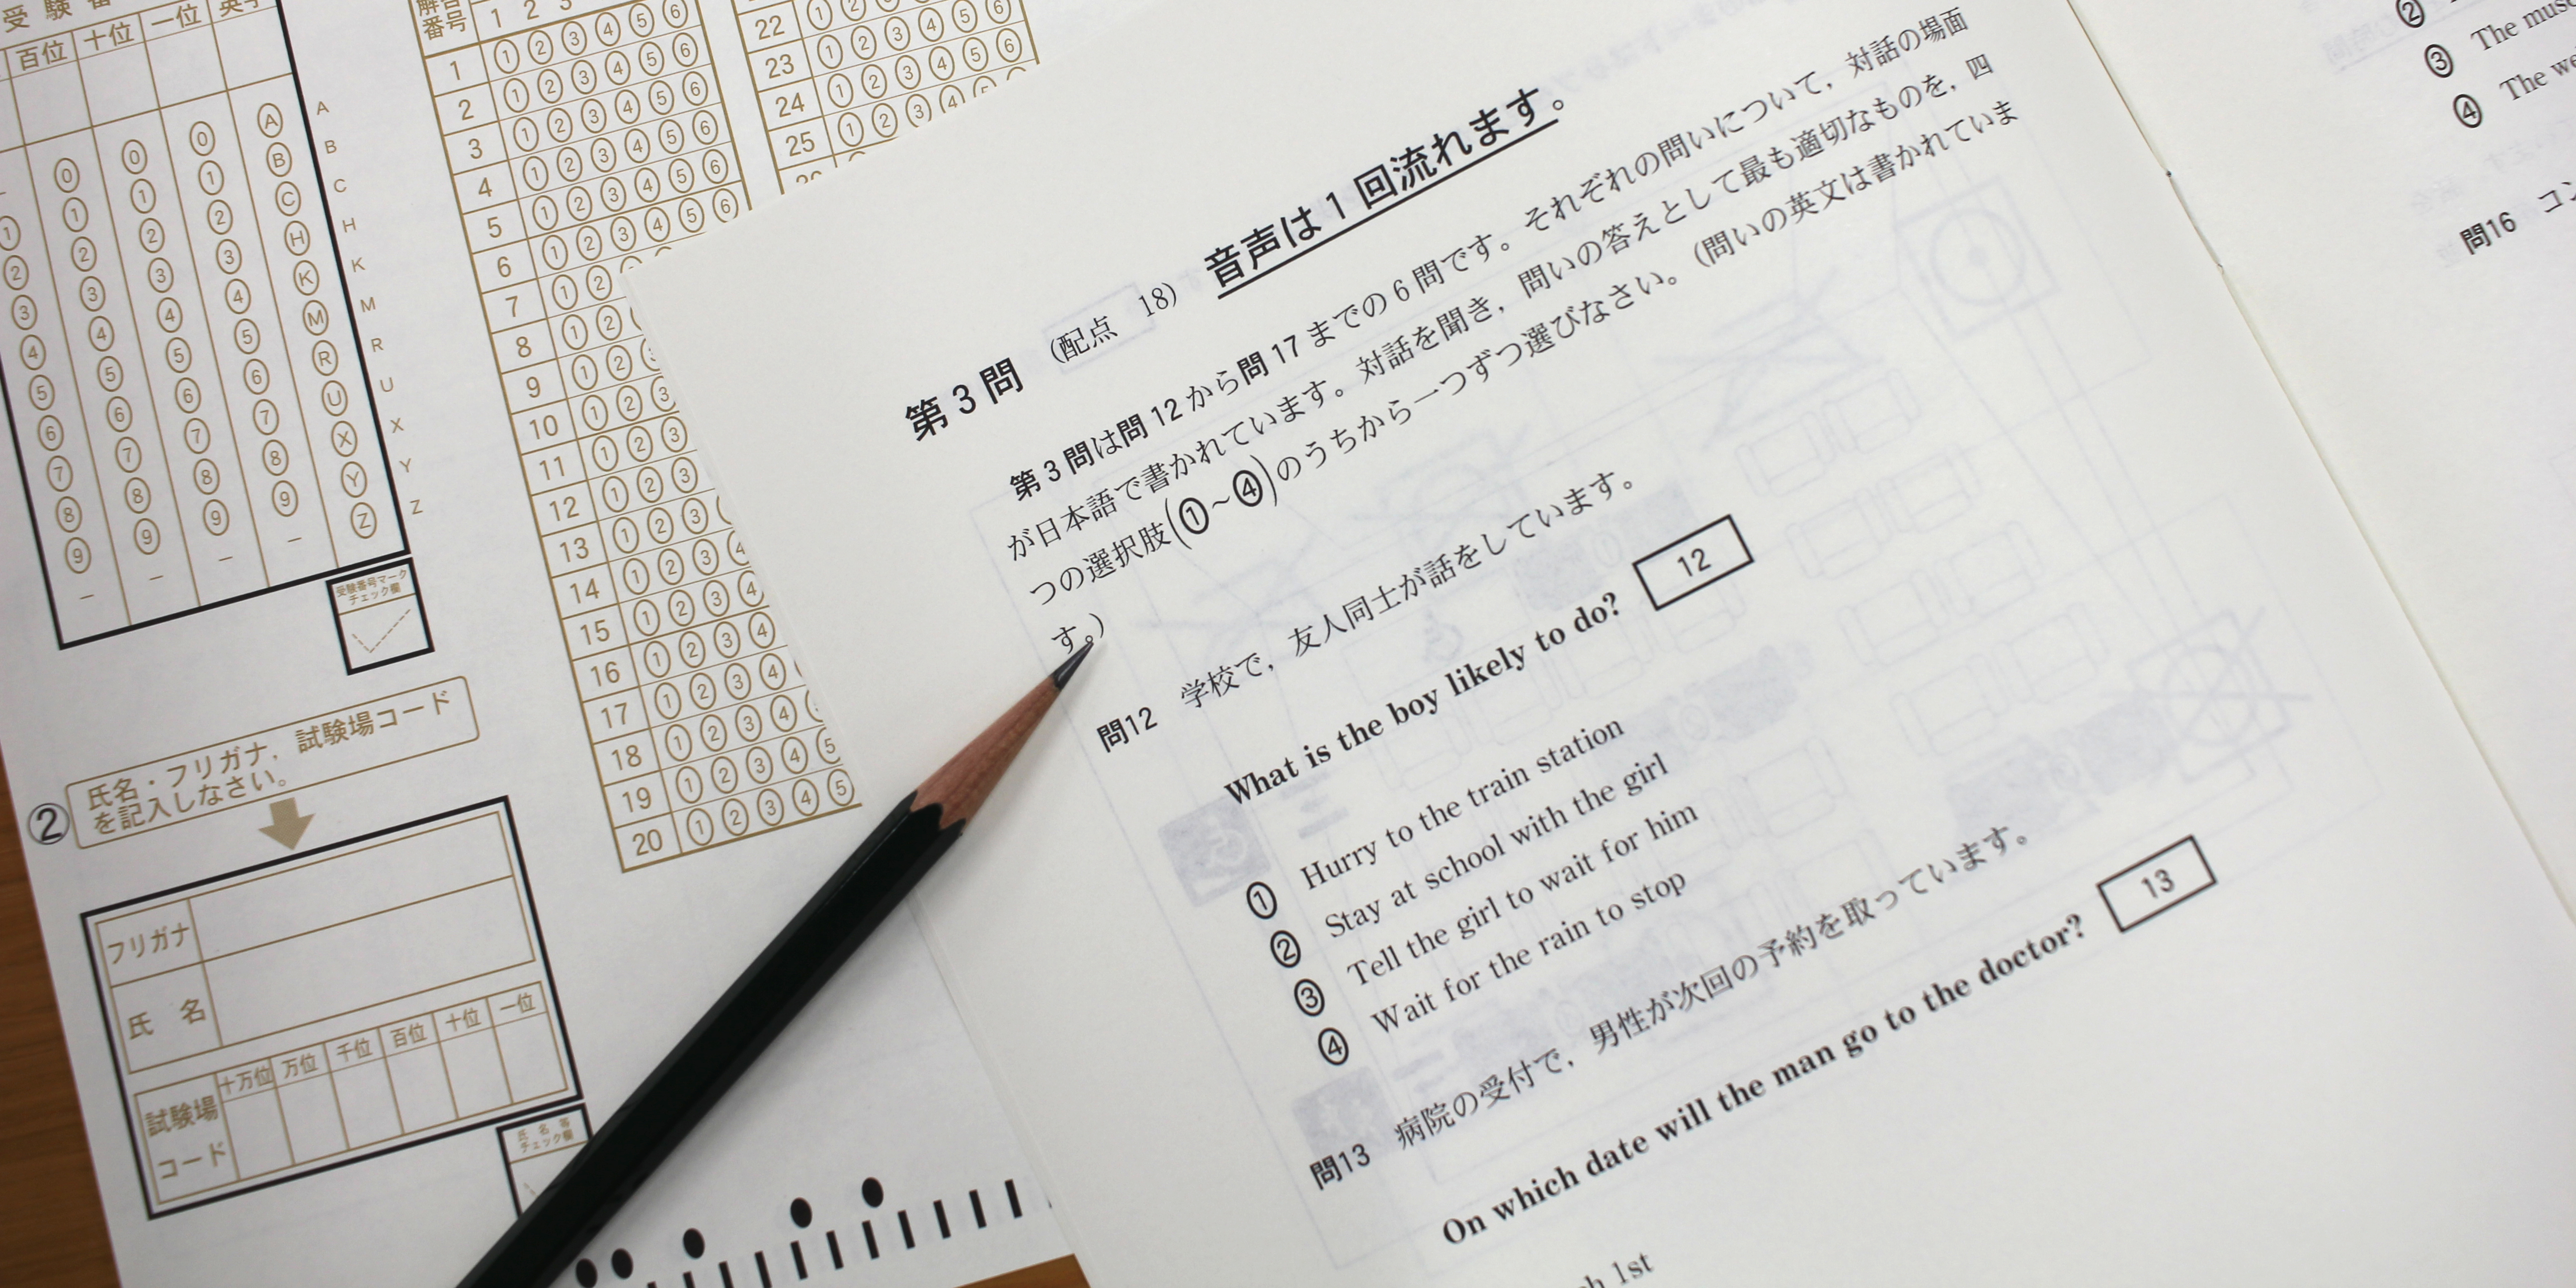 受験番
百位 十位 一位 英字
0 0 0 A
1 1 1 1 B
2 2 2 2 C
3 3 3 3 H
4 4 4 4 K
5 5 5 5 M
6 6 6 6 R
7 7 7 7 U
8 8 8 8 X
9 9 9 9 Y
Z
A
B
C
H
K
M
R
U
X
Y
Z
受験番号マーク
チェック欄
② 氏名・フリガナ，試験場コード
を記入しなさい。
フリガナ
氏 名
試験場
コード
十万位 万位 千位 百位 十位 一位
氏名等
チェック欄
解答
番号
1 2 3
1 ① ② ③ ④ ⑤ ⑥
2 ① ② ③ ④ ⑤ ⑥
3 ① ② ③ ④ ⑤ ⑥
4 ① ② ③ ④ ⑤ ⑥
5 ① ② ③ ④ ⑤ ⑥
6 ① ② ③ ④ ⑤ ⑥
7 ① ②
8 ① ②
9 ① ②
10 ① ② ③
11 ① ② ③
12 ① ② ③
13 ① ② ③
14 ① ② ③ ④
15 ① ② ③ ④
16 ① ② ③ ④
17 ① ② ③ ④
18 ① ② ③ ④
19 ① ② ③ ④ ⑤
20 ① ② ③ ④ ⑤
22 ① ② ③ ④ ⑤ ⑥
23 ① ② ③ ④ ⑤ ⑥
24 ① ② ③ ④ ⑤ ⑥
25 ① ② ③ ④
第3問 （配点 18） 音声は1回流れます。
第3問は問12から問17までの6問です。それぞれの問いについて，対話の場面
が日本語で書かれています。対話を聞き，問いの答えとして最も適切なものを，四
つの選択肢(①～④)のうちから一つずつ選びなさい。（問いの英文は書かれていま
す。）
問12 学校で，友人同士が話をしています。
What is the boy likely to do? 12
① Hurry to the train station
② Stay at school with the girl
③ Tell the girl to wait for him
④ Wait for the rain to stop
問13 病院の受付で，男性が次回の予約を取っています。
On which date will the man go to the doctor? 13
1st
②
③ The
④ The
問16 コン